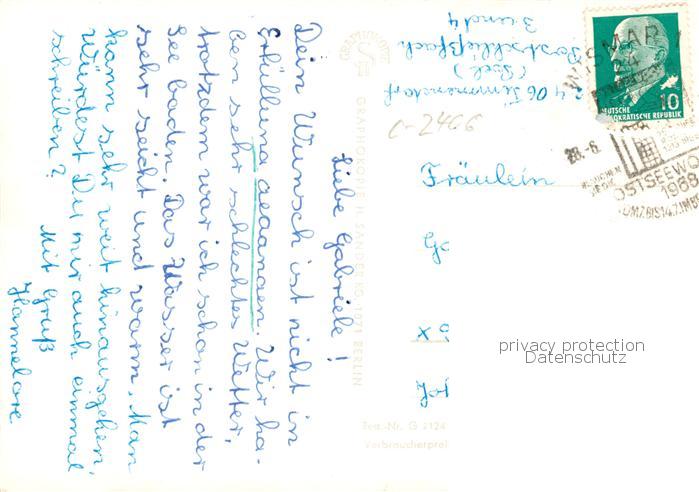 Liebe Gabriele!
Dein Wunsch ist nicht in
Erfüllung gegangen. Wir ha-
ben sehr schlechtes Wetter,
trotzdem war ich schon in der
See baden. Das Wasser ist
sehr seicht und warm. Man
kann sehr weit hinausgehen.
Würdest Du mir auch einmal
schreiben?
Mit Gruß
Hannelore
2406 Timmendorf
(Poel)
Postschließfach
3 und 4
GRAPHOKOPIE H. SANDER KG, 1071 BERLIN
Best.-Nr. G 2124
Verbraucherpreis
G-2406
Fräulein
WISMAR 1
10
DEUTSCHE
DEMOKRATISCHE REPUBLIK
28.-6.
BESUCHEN
SIE DIE
OSTSEEWOCHE
1968
privacy protection
Datenschutz